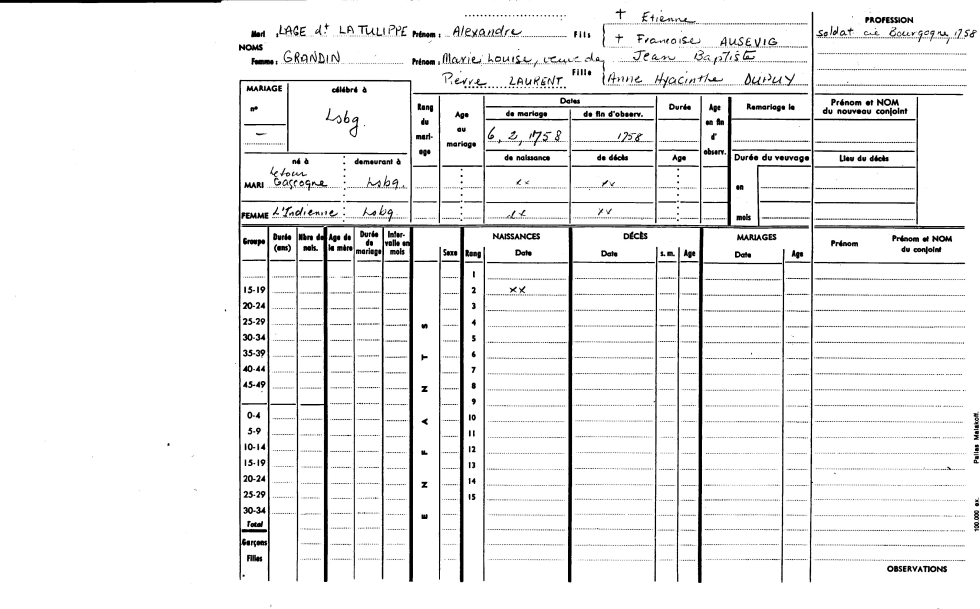 + Etienne
PROFESSION
Mari : LAGE dt LA TULIPPE Prénom : Alexandre Fils + Francoise AUSEVIG soldat cie Bourgogne, 1758
NOMS
Femme : GRANDIN Prénom : Marie Louise, veuve de Jean Baptiste
Pierre LAURENT Fille Anne Hyacinthe DUPUY
MARIAGE célébré à
n° Lsbg.
—
Rang du mariage
Age au mariage
Dates
de mariage de fin d'observ.
6, 2, 1758 1758
de naissance de décès
Durée
Age
Age en fin d' observ.
Remariage le
Durée du veuvage
en
mois
Prénom et NOM du nouveau conjoint
Lieu du décès
né à demeurant à
MARI Gascogne Lsbg. xx xx
FEMME L'Indienne Lsbg xx xx
Groupe Durée (ans) Nbre de nais. Age de la mère Durée de mariage Intervalle en mois
ENFANTS
Sexe Rang
NAISSANCES
Date
DÉCÈS
Date s. m. Age
MARIAGES
Date Age
Prénom Prénom et NOM du conjoint
1
15-19 2 xx
20-24 3
25-29 4
30-34 5
35-39 6
40-44 7
45-49 8
9
0-4 10
5-9 11
10-14 12
15-19 13
20-24 14
25-29 15
30-34
Total
Garçons
Filles
OBSERVATIONS
100.000 ex. Pallas Malakoff.